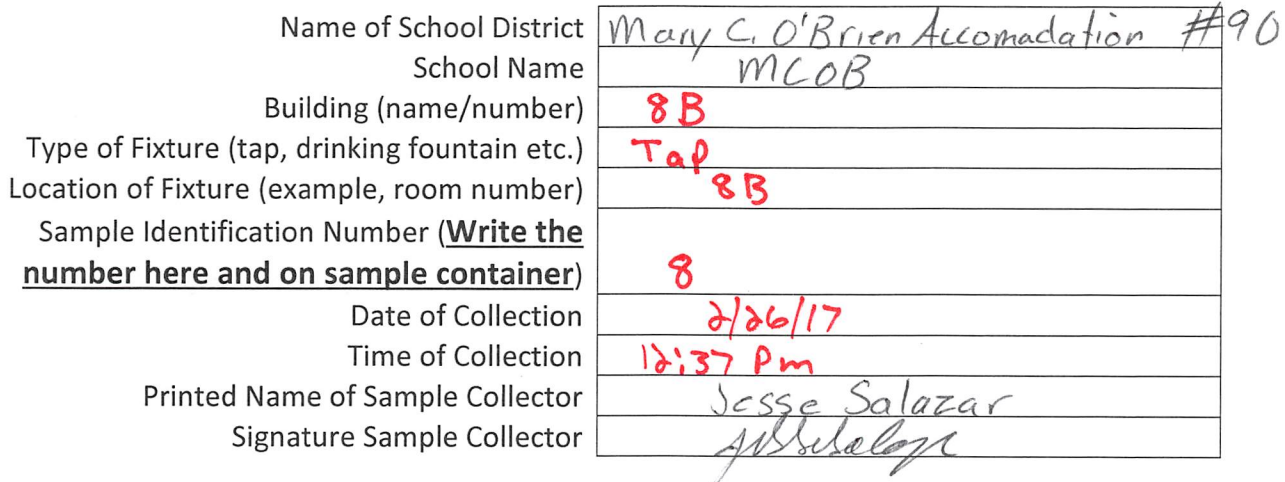 Name of School District Mary C. O'Brien Accomadation #90
School Name MCOB
Building (name/number) 8B
Type of Fixture (tap, drinking fountain etc.) Tap
Location of Fixture (example, room number) 8B
Sample Identification Number (Write the
number here and on sample container) 8
Date of Collection 2/26/17
Time of Collection 12:37 Pm
Printed Name of Sample Collector Jesse Salazar
Signature Sample Collector